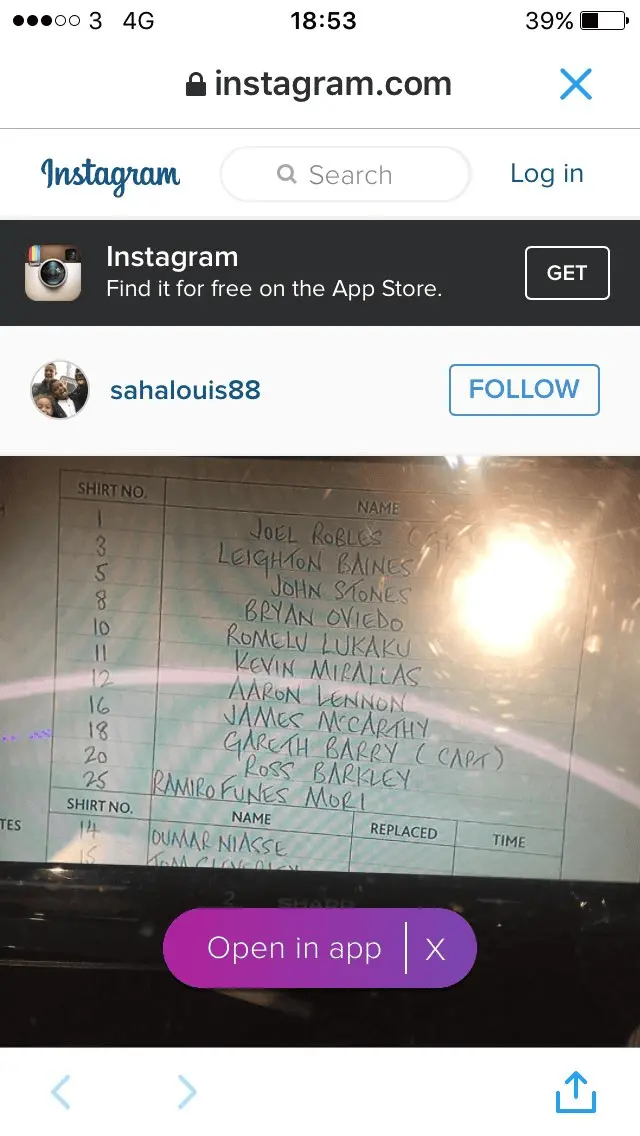 3 4G 18:53 39%
instagram.com
Instagram Search Log in
Instagram
Find it for free on the App Store.
GET
sahalouis88 FOLLOW
SHIRT NO. NAME
1 JOEL ROBLES (GK
3 LEIGHTON BAINES
5 JOHN STONES
8 BRYAN OVIEDO
10 ROMELU LUKAKU
11 KEVIN MIRALLAS
12 AARON LENNON
16 JAMES McCARTHY
18 GARETH BARRY (CAPT)
20 ROSS BARKLEY
25 RAMIRO FUNES MORI
TES SHIRT NO. NAME REPLACED TIME
14 OUMAR NIASSE
15 TOM CLEVERLEY
SHARP
Open in app X